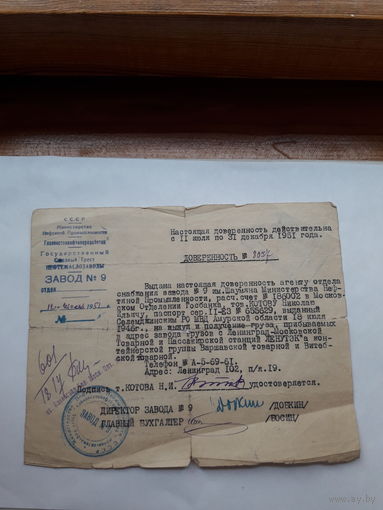 С С С Р
Министерство
Нефтяной Промышленности
Государственный
Союзный Трест
НЕФТЕМАСЛОЗАВОДЫ
ЗАВОД № 9
ОТДЕЛ
1951 г.
№
Настоящая доверенность действительна
с II июля по 31 декабря 1951 года.
ДОВЕРЕННОСТЬ №
Выдана настоящая доверенность агенту отдела
снабжения завода № 9 им. Шаумяна Министерства Неф-
тяной Промышленности, расч.счет № 186002 в Москов-
ском Отделении Госбанка, тов. КОТОВУ Николаю
паспорт сер. II-ЕЗ № 655629, выданный
РО МВД Амурской области 18 июля
1946г., на выкуп и получение груза, прибываемых
в адрес завода грузов с Ленинград-Московской
Товарной и Пассажирской станций ЛЕНУТЭК'а
контейнерной группы Варшавской товарной и Витеб-
ской товарной.
Телефон № А-5-69-61.
Адрес: Ленинград 102, п/я.19.
Подпись т.КОТОВА Н.И. удостоверяется.
ДИРЕКТОР ЗАВОДА № 9 /ДОБКИН/
ГЛАВНЫЙ БУХГАЛТЕР /БОСИН/
ay.by